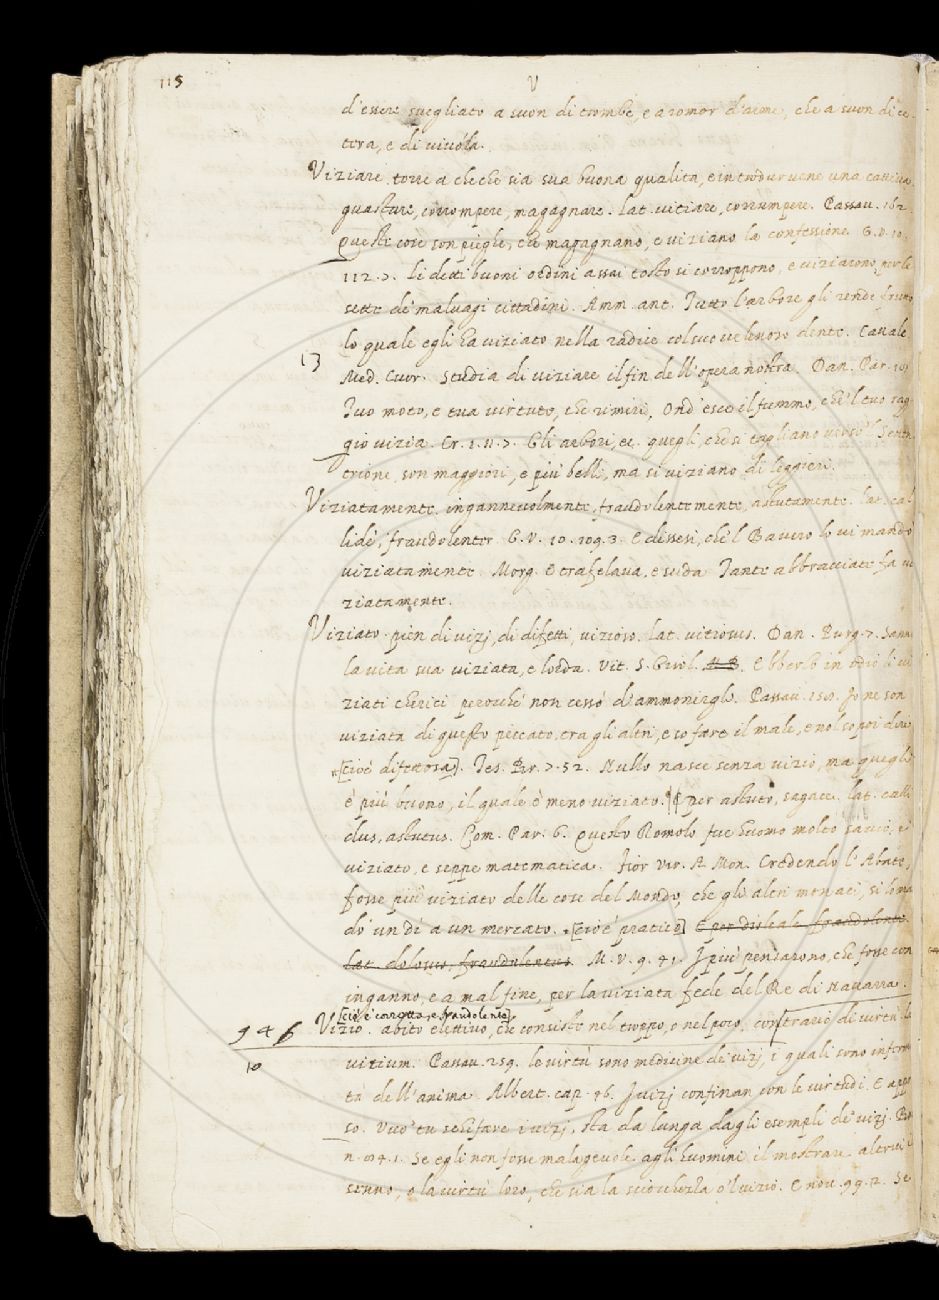 115
V
d'essere svegliato a suon di trombe, e a romor d'arme, che a suon di ce-
tera, e di vivola.
Viziare. torre a che che sia sua buona qualita, e introdurvene una cattiva
guastare, corrompere, magagnare. lat. vitiare, corrumpere. Passav. 162.
Queste cose son quelle, che magagnano, e viziano la confessione. G.V. 10.
112. 7. Li detti buoni ordini assai tosto si corroppono, e viziarono per le
sette de' malvagi cittadini. Amm. ant. Tutto l'arbore gli rende
lo quale egli ha viziato nella radice col suo velenoso dente. Cavale
13
Med. Cuor. Studia di viziare il fin dell'opera nostra. Dan. Par.
Tuo moto, e tua virtute, che rimiri, Ond' esce il fummo, che 'l tuo rag-
gio vizia. Cr. 1. 11. 7. Gli arbori, ec. quegli, che si tagliano verso 'l Setten
trione, son maggiori, e più belli, ma si viziano di leggieri.
Viziatamente. ingannevolmente, fraudolentemente, astutamente. lat. cal
lidè, fraudolenter. G.V. 10. 109. 3. E dissesi, che 'l Bavero lo vi mandò
viziatamente. Morg. E trafelava, e suda Tante abbracciate fa vi
ziatamente.
Viziato. pien di vizj, di difetti, vizioso. lat. vitiosus. Dan. Purg. 7. Sanno
la vita sua viziata, e lorda. Vit. S. Girol. Ebberlo in odio li vi
ziati cherici perocchè non cessò d'ammonirgli. Passav. Io ne son
viziata di questo peccato, tra gli altri, e so fare il male, e nol so poi dire
[cioè difettosa]. Tes. Br. 7. 52. Nullo nasce senza vizio, ma quegli
è più buono, il quale è meno viziato. ¶ per astuto, sagace. lat. calli
dus, astutus. Com. Par. 6. Questo Romolo fue huomo molto savio, e
viziato, e seppe matematica. Fior Vir. A. Mon. Credendo l'Abate,
fosse più viziato delle cose del Mondo, che gli altri monaci, si lo man
dò un dì a un mercato. [cioè pratico] E per disleale fraudolente.
lat. dolosus, fraudulentus. M.V. 9. 41. I più pensarono, che fosse con
inganno, e a mal fine, per la viziata fede del Re di Navarra.
[cioè corrotta, e fraudolente].
946 Vizio. abito elettivo, che consiste nel troppo, o nel poco, contrario di virtù. la
vitium. Passav. 259. le virtù sono medicine de' vizj, i quali sono infermi
10
tà dell'anima. Albert. cap. 46. I vizj confinan con le virtudi. E appr
so. Vuo' tu schifare i vizj, sta da lunga dagli esempli de' vizj. Bo
n. 94. 1. Se egli non fosse malagevole agli huomini il mostrare altrui il
senno, o la virtù loro, che sia la sciocchezza o 'l vizio. E nov. 99. 12. Se